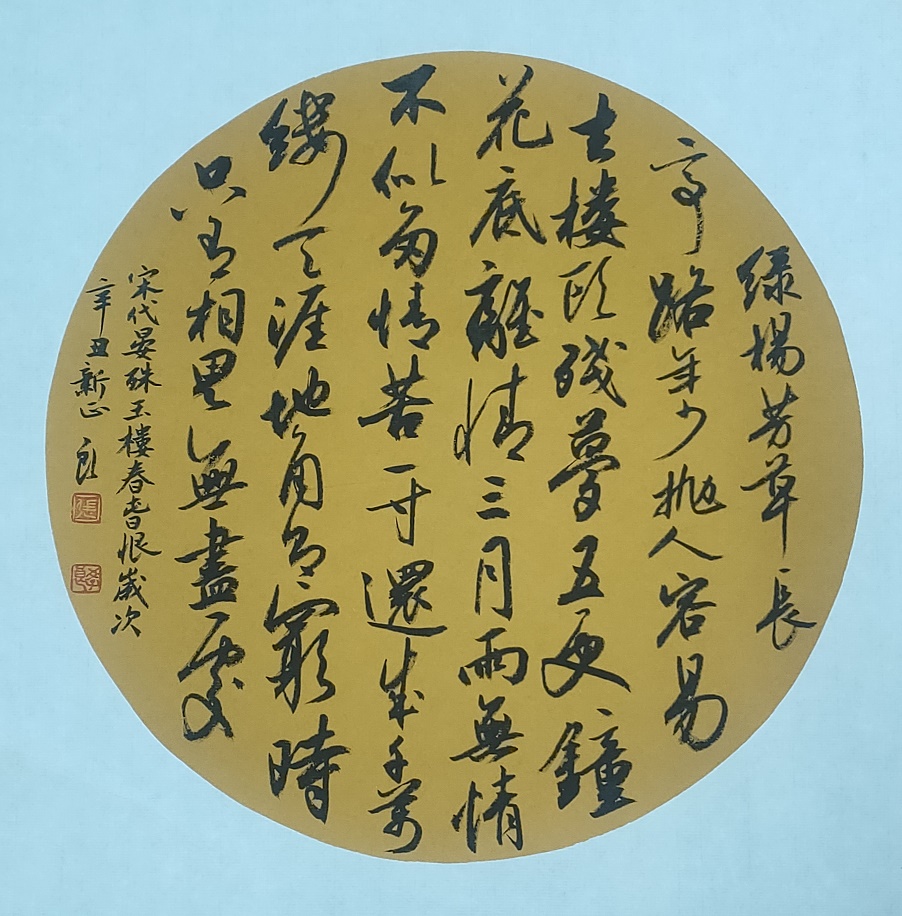 緑楊芳草長
亭路年少抛人容易
去楼頭殘夢五更鐘
花底離情三月雨無情
不似多情苦一寸還成千萬
縷天涯地角有窮時
只有相思無盡處
宋代晏殊玉楼春春恨歲次
辛丑新正 良
張